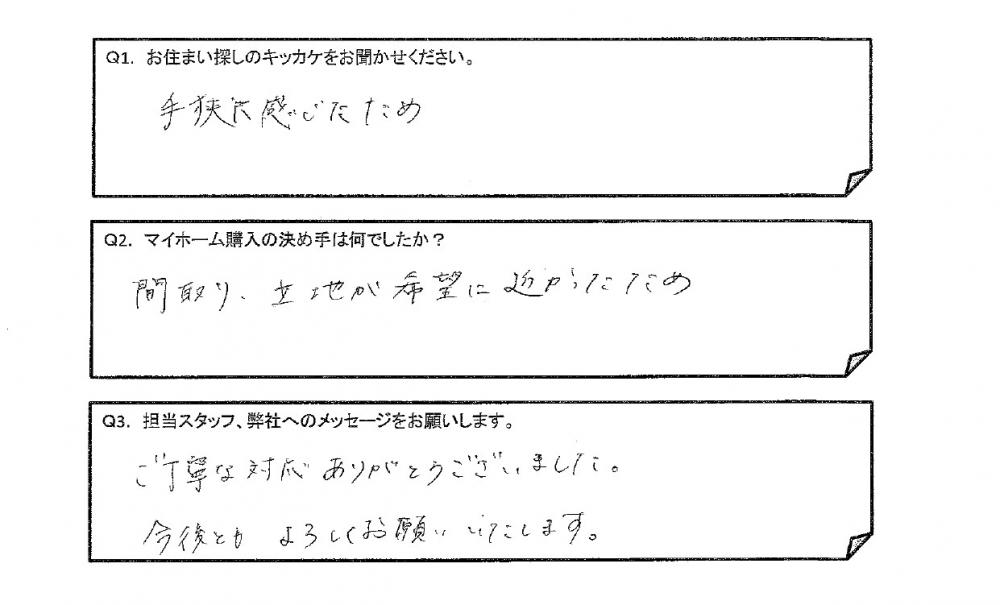 Q1. お住まい探しのキッカケをお聞かせください。
手狭に感じたため
Q2. マイホーム購入の決め手は何でしたか？
間取り、立地が希望に近かったため
Q3. 担当スタッフ、弊社へのメッセージをお願いします。
ご丁寧な対応ありがとうございました。
今後とも よろしくお願いいたします。